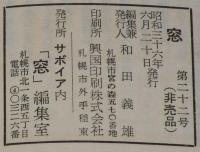 窓 第二十二号 (非売品)
昭和三十六年発行
六月二十日
編集兼
発行人 和田義雄
札幌市宮の森五七〇番地
印刷所 興国印刷株式会社
札幌市外手稲東
発行所 サボイア内
「窓」編集室
札幌市北一条西五丁目
電話 ④〇三二六番